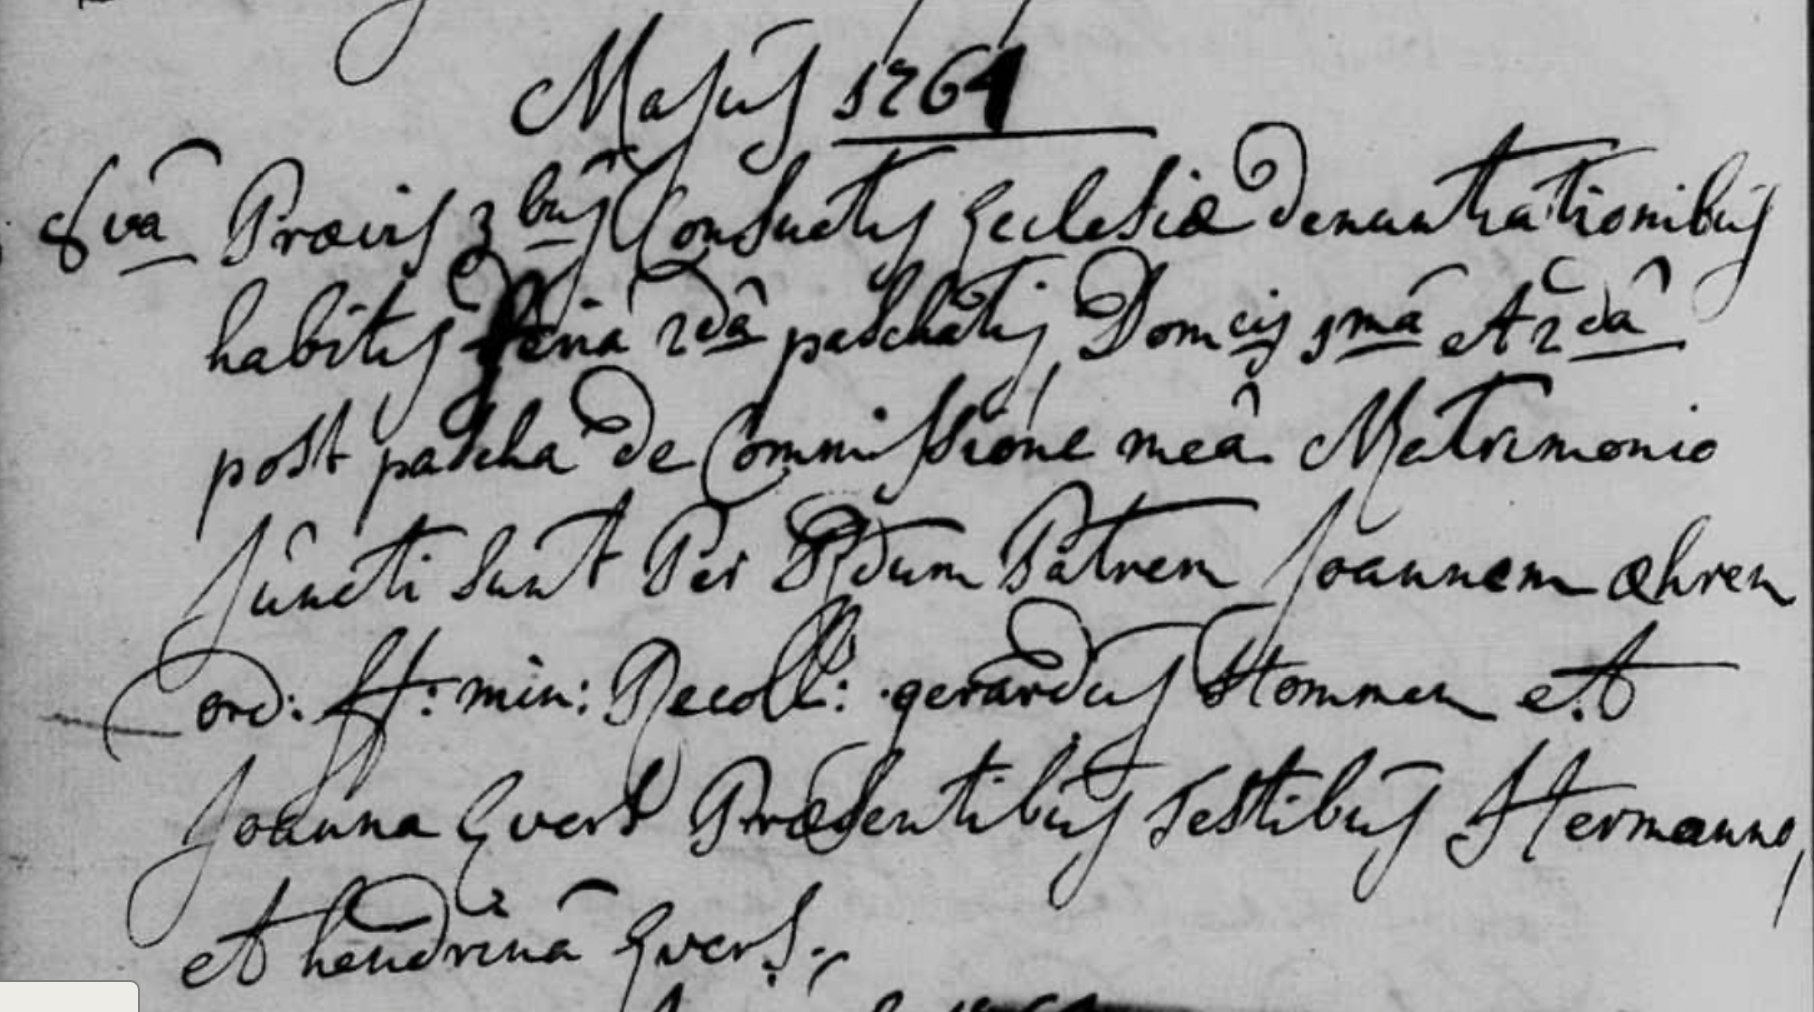 Majus 1764
8vâ Prævis 3bus Consuetis Ecclesiæ denuntiationibus
habitis feria 2dâ paschatis Domcis 1mâ et 2dâ
post pascha de Commissione meâ Matrimonio
Juncti sunt Per Rdum Patrem Joannem æhren
ord: ff: min: Recoll: gerardus Hommen et
Joanna Evers Præsentibus Testibus Hermanno
et hendrinâ Evers.